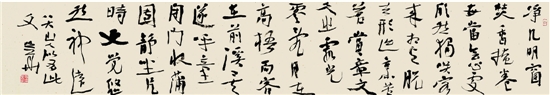 净几明窗
焚香掩卷
每当会心处
欣然独笑客
来相与脱
去形迹烹苦
茗赏章文
久之霞光
零乱月在
高梧而客
在前溪矣
遂呼童
闭门收蒲
团静坐片
时更觉悠
然神远
此
文